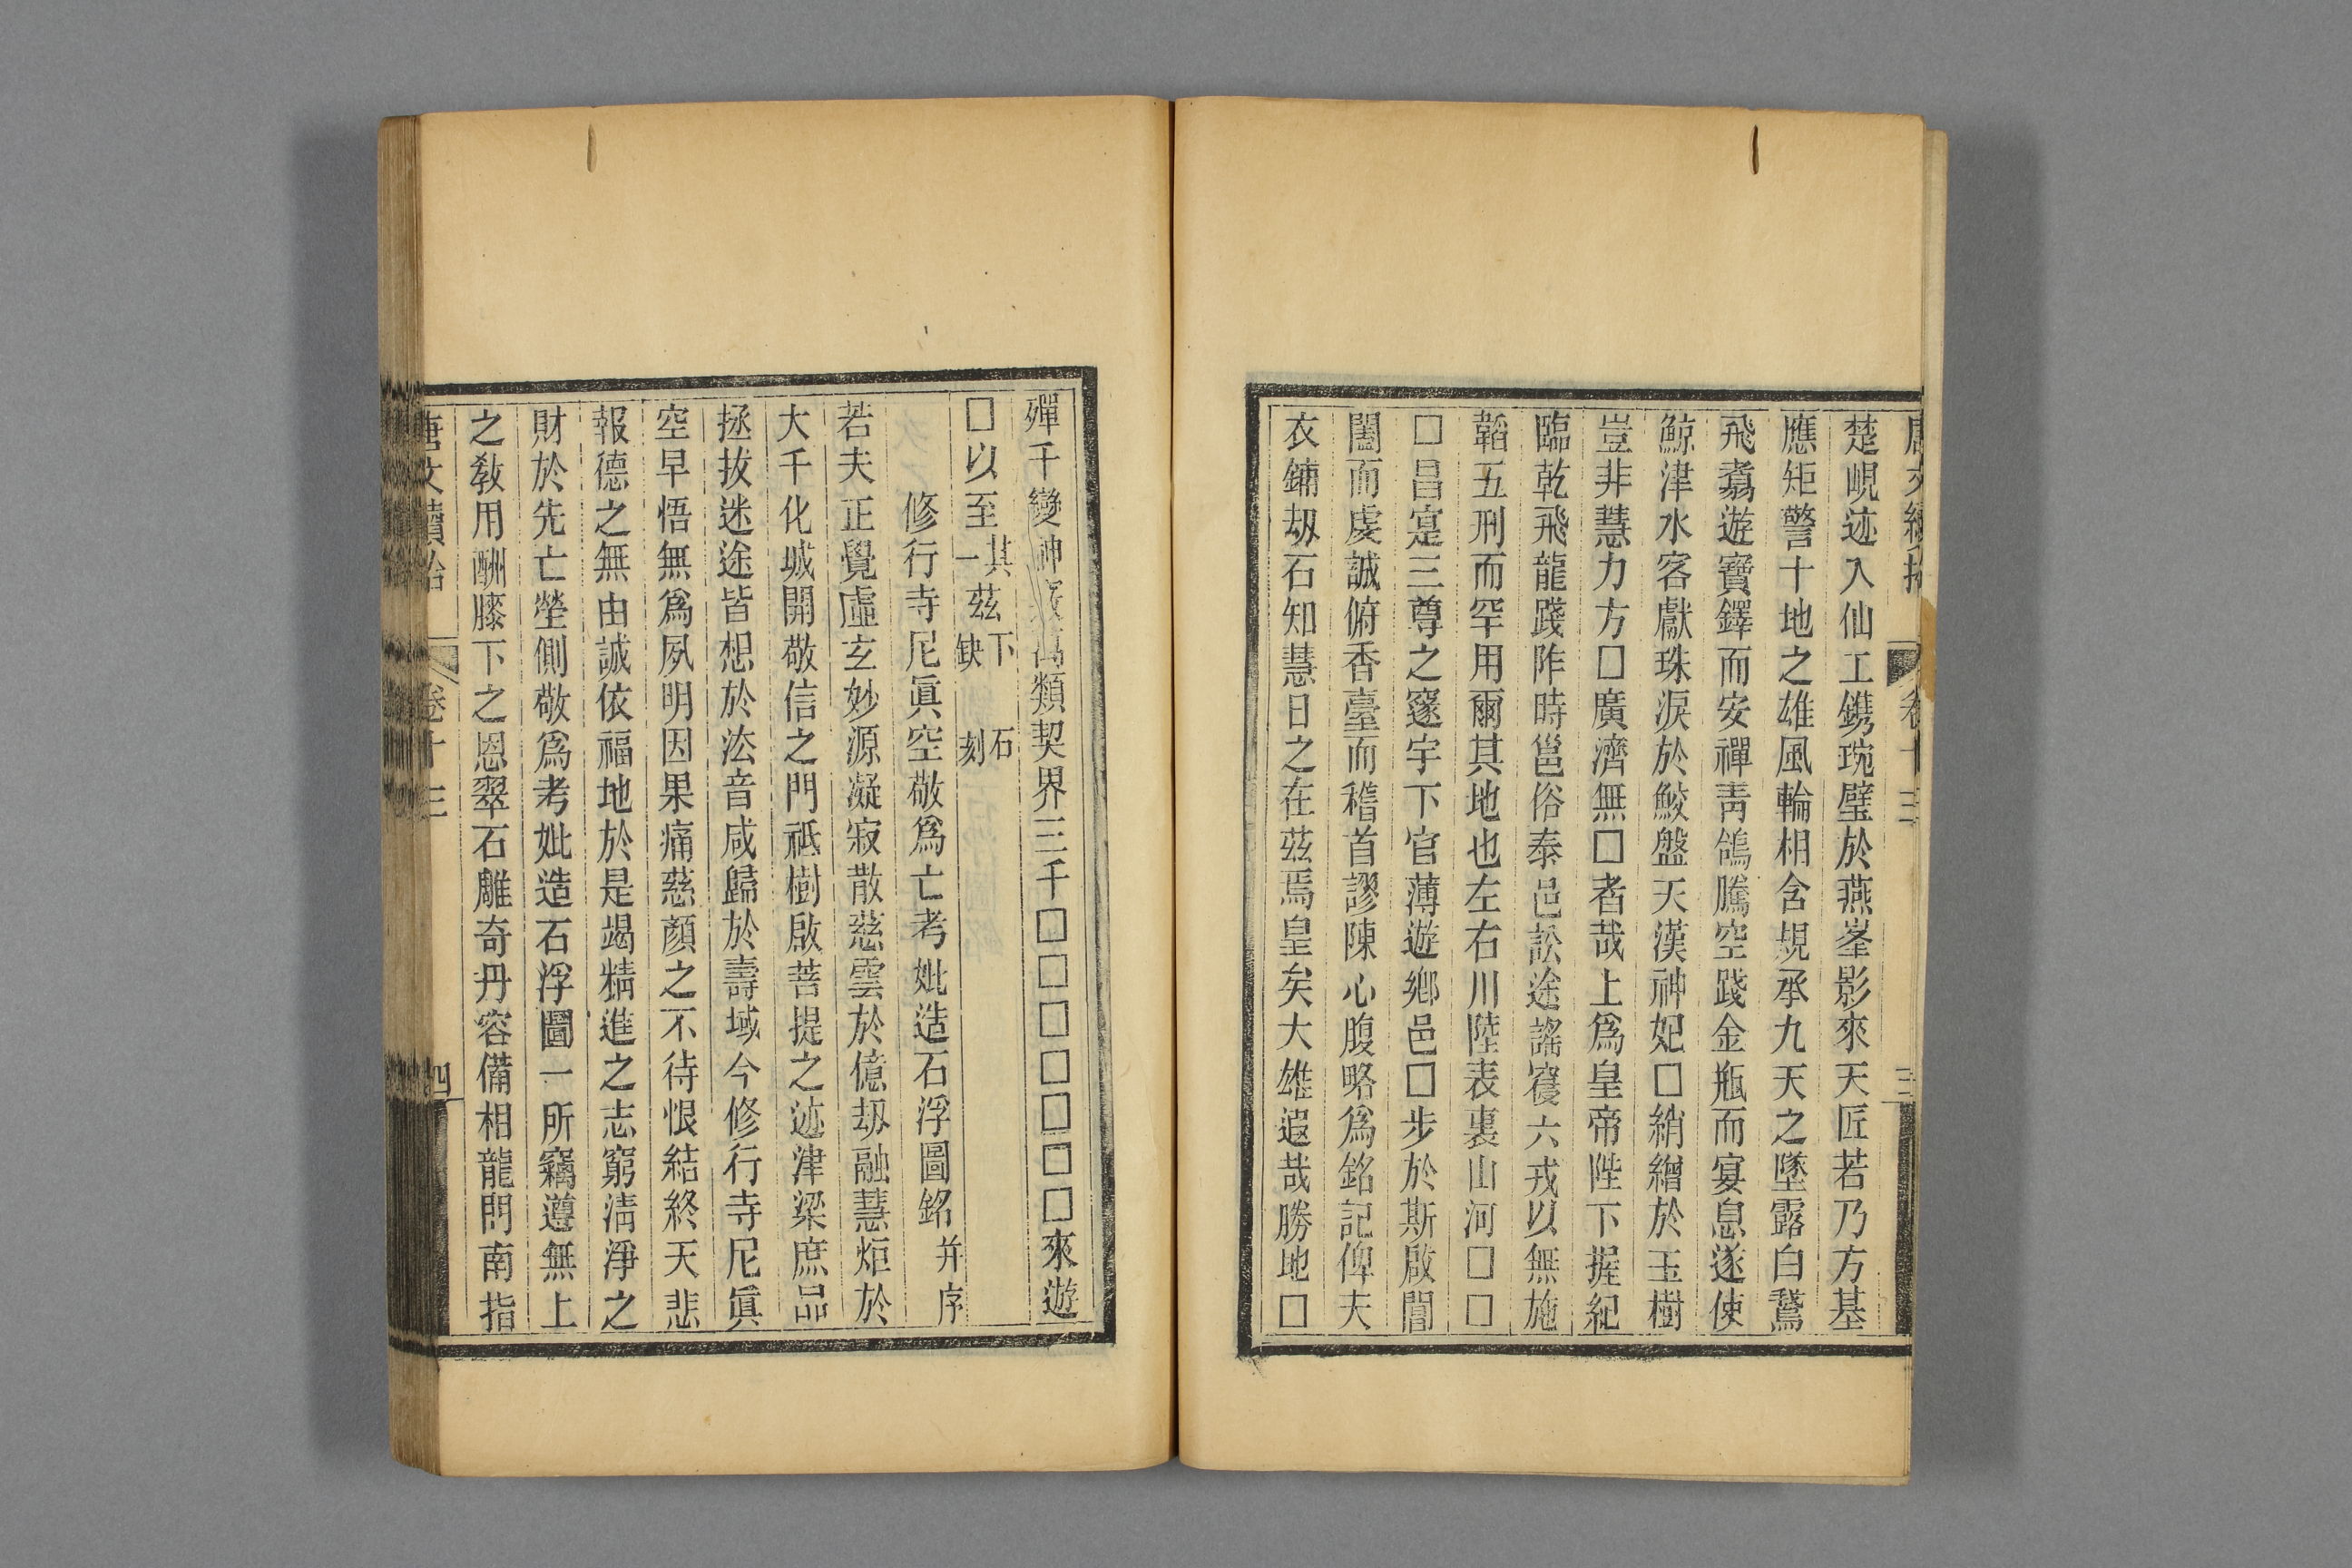 唐文續拾 卷十三 三
楚峴迹入仙工鐫琬璧於燕峯影來天匠若乃方基
應矩警十地之雄風輪相含規承九天之墜露白鵞
飛翥遊寶鐸而安禪靑鴿騰空踐金瓶而宴息遂使
鯨津水客獻珠淚於鮫盤天漢神妃□綃繒於玉樹
豈非慧力方□廣濟無□者哉上爲皇帝陛下握紀
臨乾飛龍踐阼時邕俗泰邑訟途謠寢六戎以無施
韜五刑而罕用爾其地也左右川陸表裏山河□□
□昌寔三尊之邃宇下官薄遊鄉邑□步於斯啟閶
闔而虔誠俯香臺而稽首謬陳心腹略爲銘記俾夫
衣鏽刼石知慧日之在茲焉皇矣大雄遐哉勝地□
殫千變神該萬類契界三千□□□□□□□來遊
□以至其一茲下缺 石刻
修行寺尼眞空敬爲亡考妣造石浮圖銘并序
若夫正覺虛玄妙源凝寂散慈雲於億刼融慧炬於
大千化城開敬信之門祇樹啟菩提之迹津梁庶品
拯拔迷途皆想於法音咸歸於壽域今修行寺尼眞
空早悟無爲夙明因果痛慈顏之不待恨結終天悲
報德之無由誠依福地於是竭精進之志窮淸淨之
財於先亡塋側敬爲考妣造石浮圖一所竊遵無上
之敎用酬膝下之恩翠石雕奇丹容備相龍門南指
唐文續拾 卷十三 四